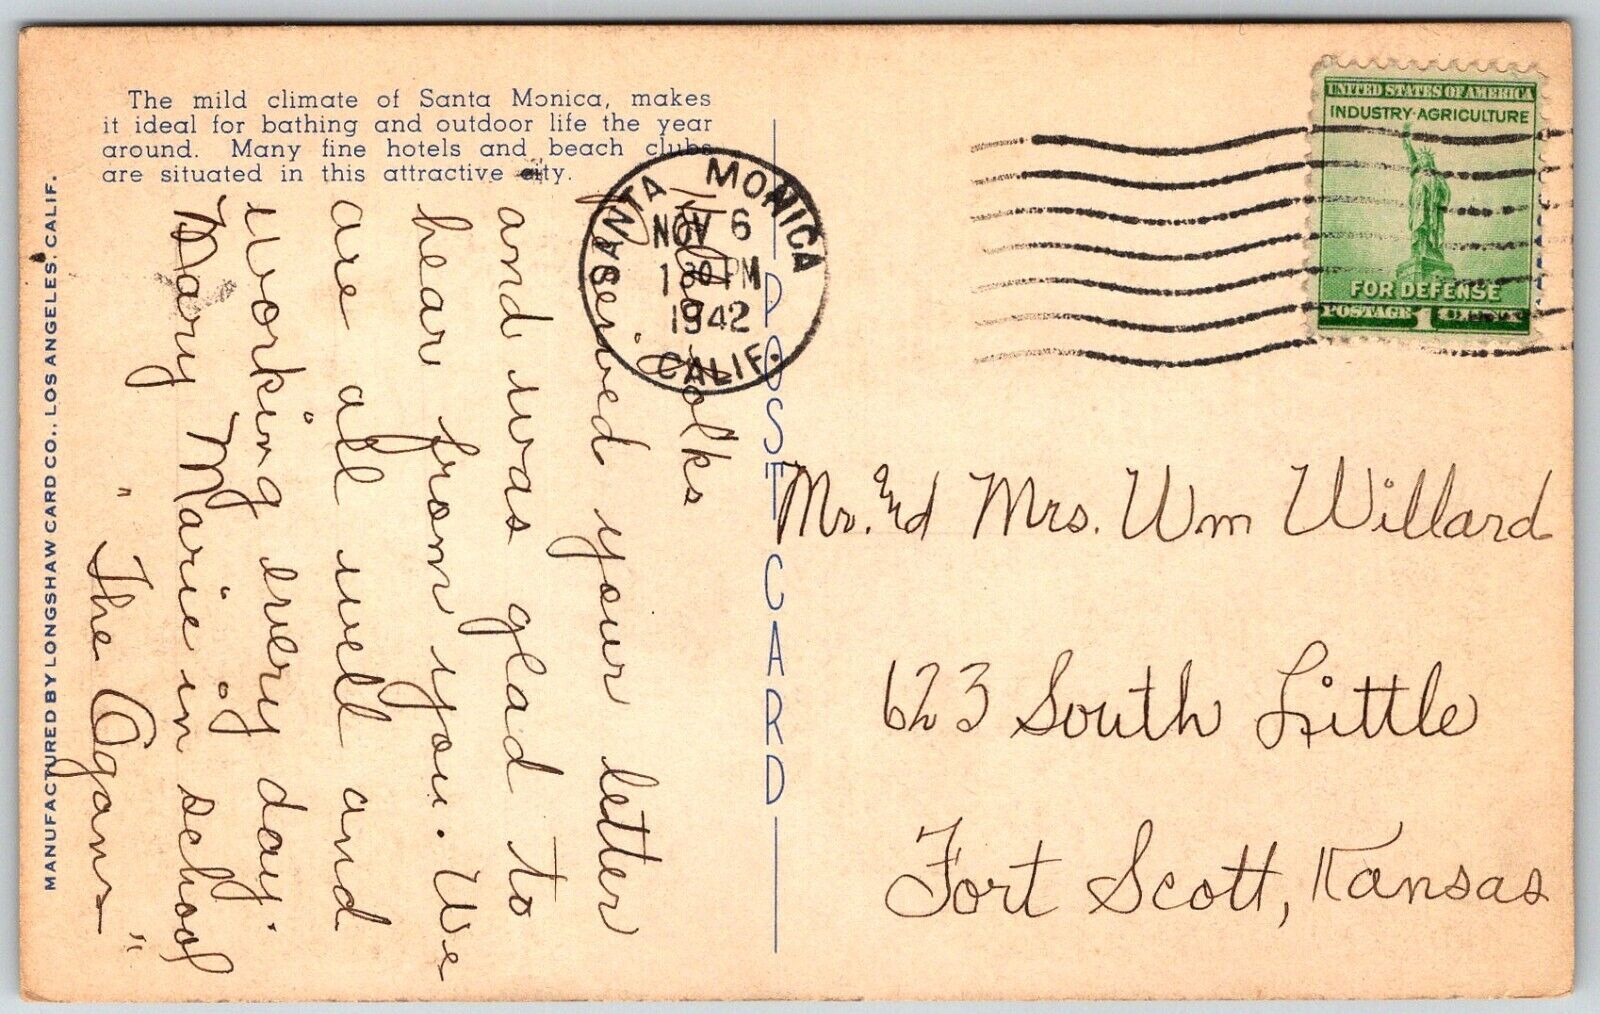 The mild climate of Santa Monica, makes
it ideal for bathing and outdoor life the year
around. Many fine hotels and beach clubs
are situated in this attractive city.
MANUFACTURED BY LONGSHAW CARD CO., LOS ANGELES, CALIF.
POST CARD
SANTA MONICA
NOV 6
1 30 PM
1942
CALIF.
UNITED STATES OF AMERICA
INDUSTRY-AGRICULTURE
FOR DEFENSE
POSTAGE 1
Hello Folks
Received your letter
and was glad to
hear from you. We
are all well and
working every day.
Mary Marie in school
" The Ogans "
Mr. and Mrs. Wm Willard
623 South Little
Fort Scott, Kansas